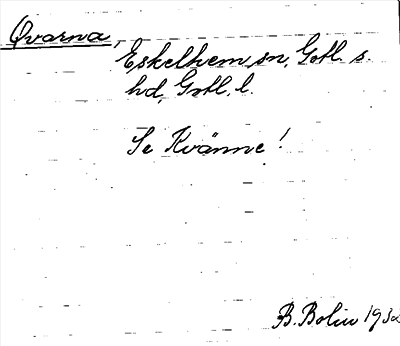 Qvarna,
Eskelhem sn, Gotl. s.
hd, Gotl. l.
Se Kvänne!
B. Bolin